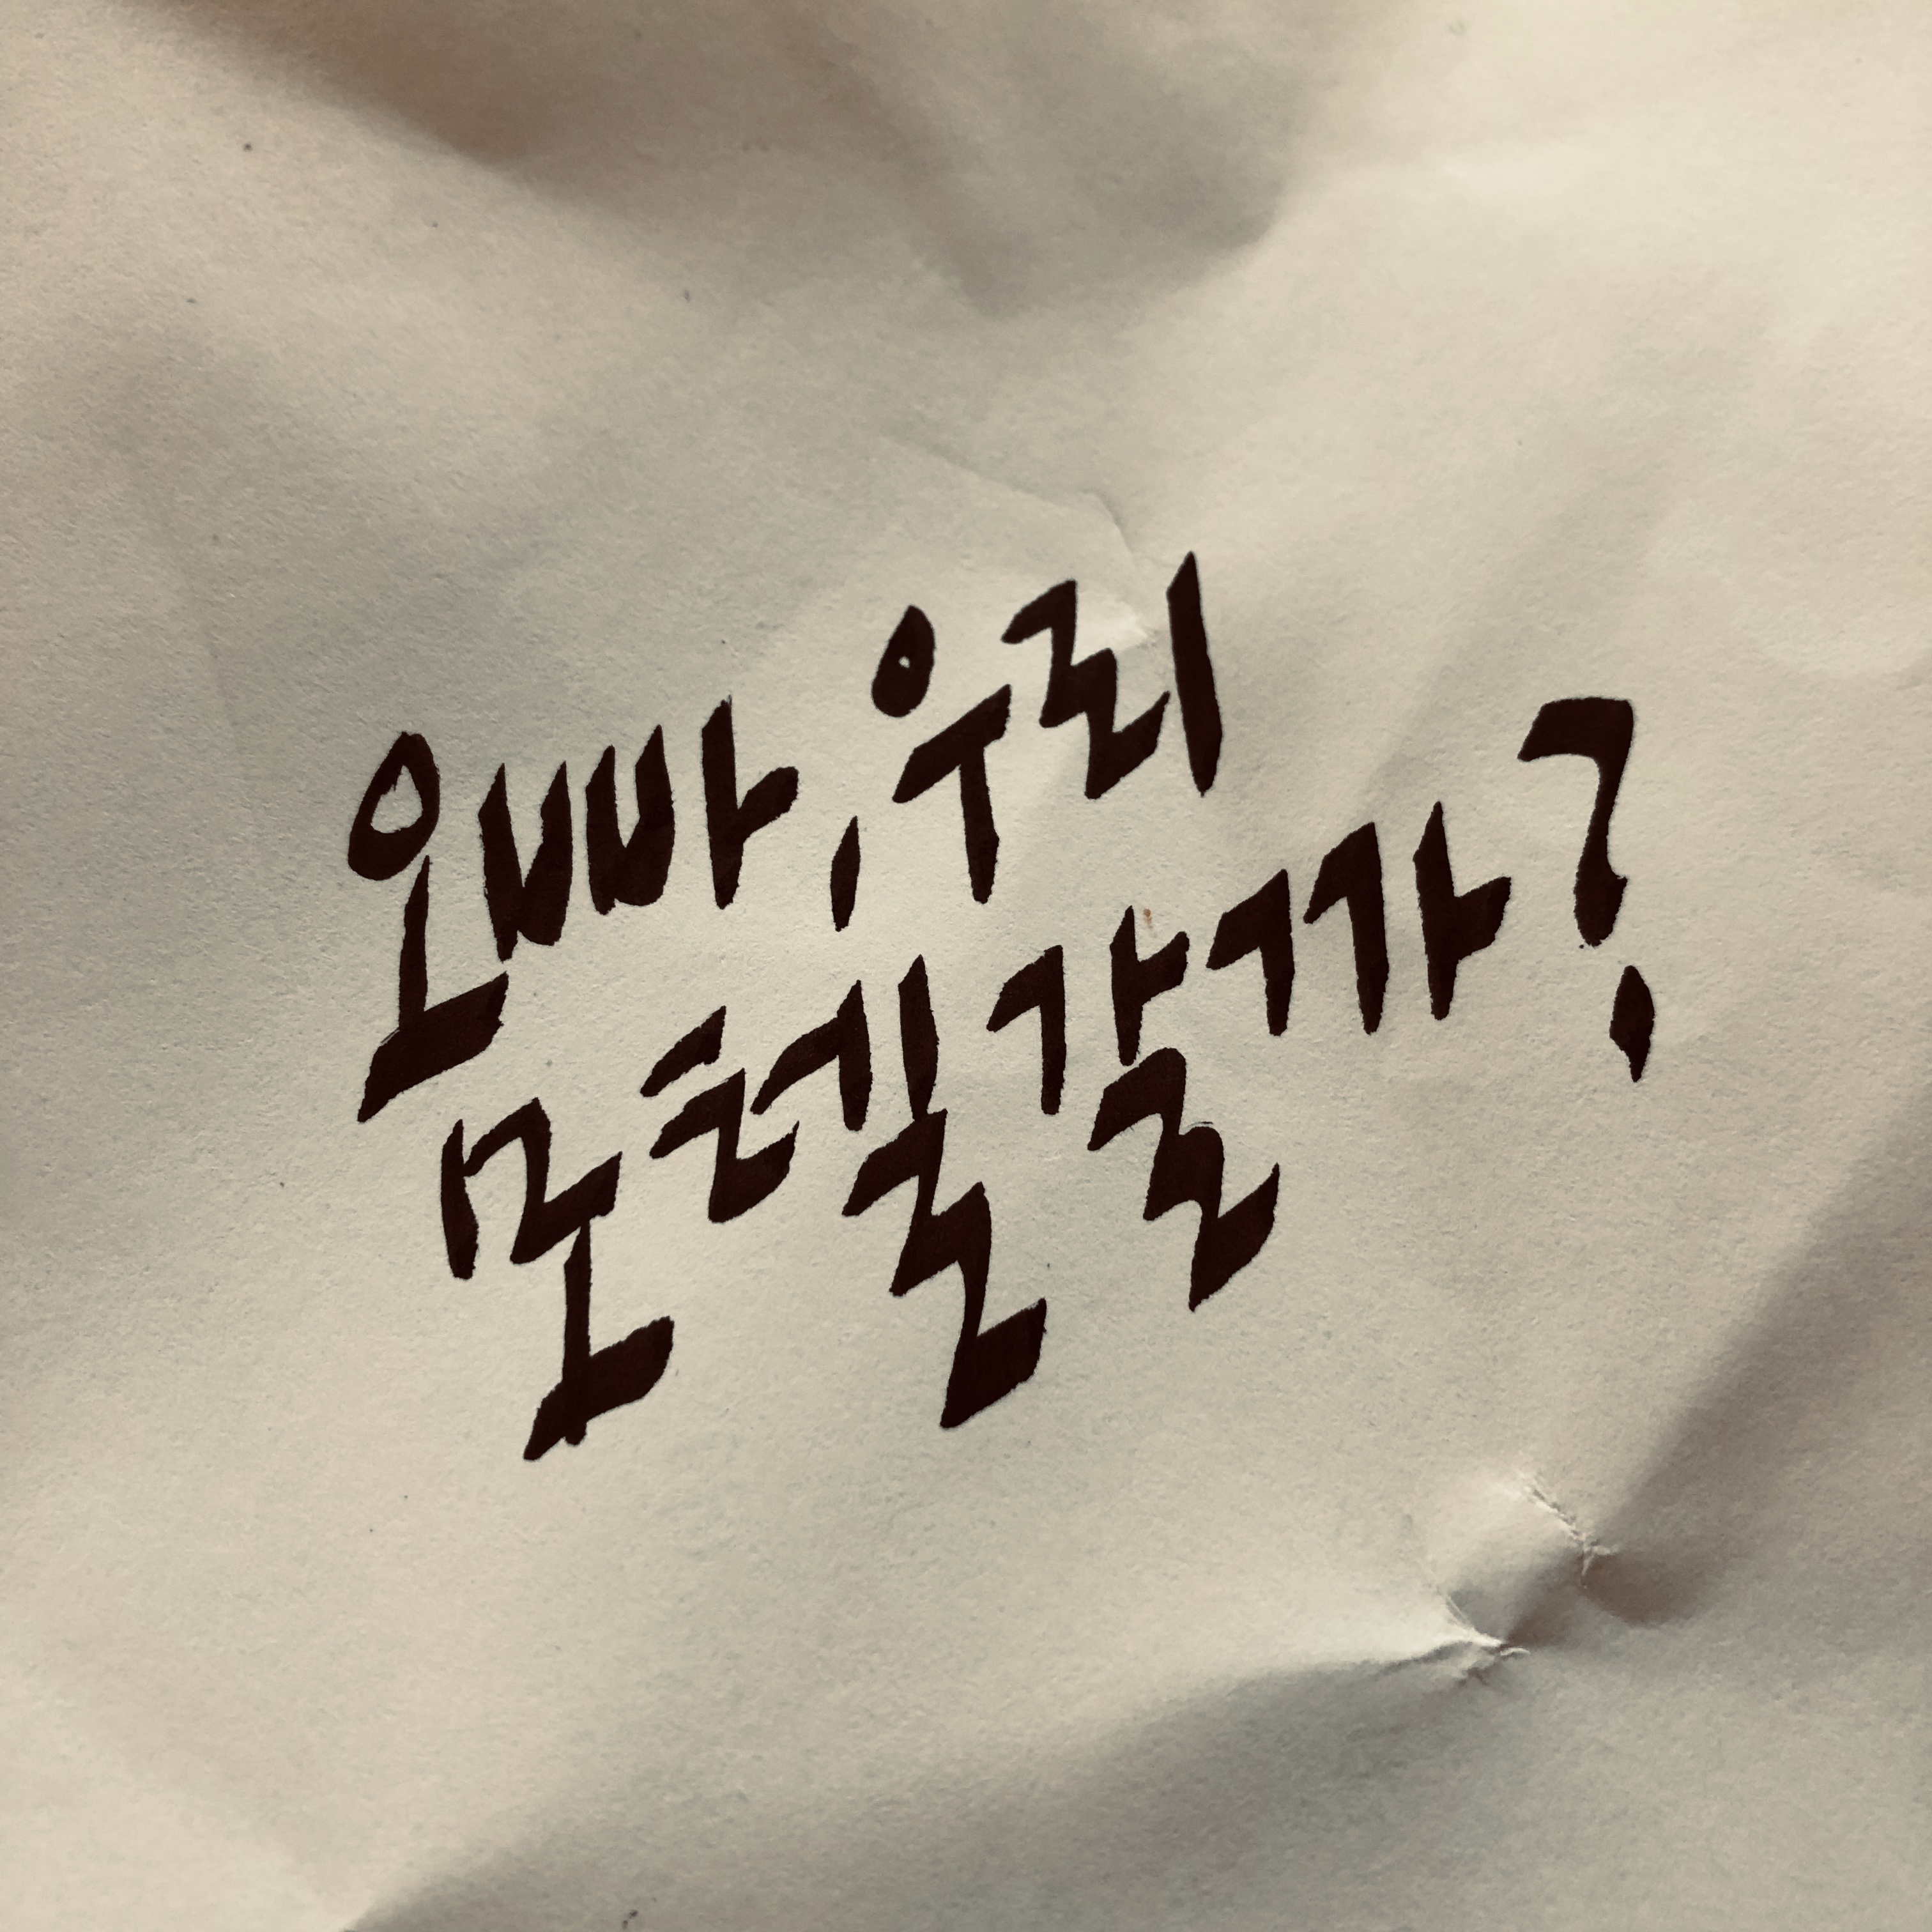 오빠, 우리
모텔 갈까?